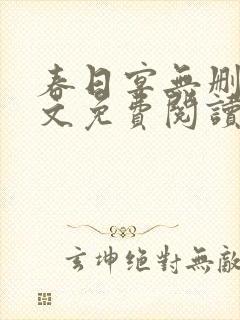 春日宴無刪
文免費閱讀
玄坤絕對無敵